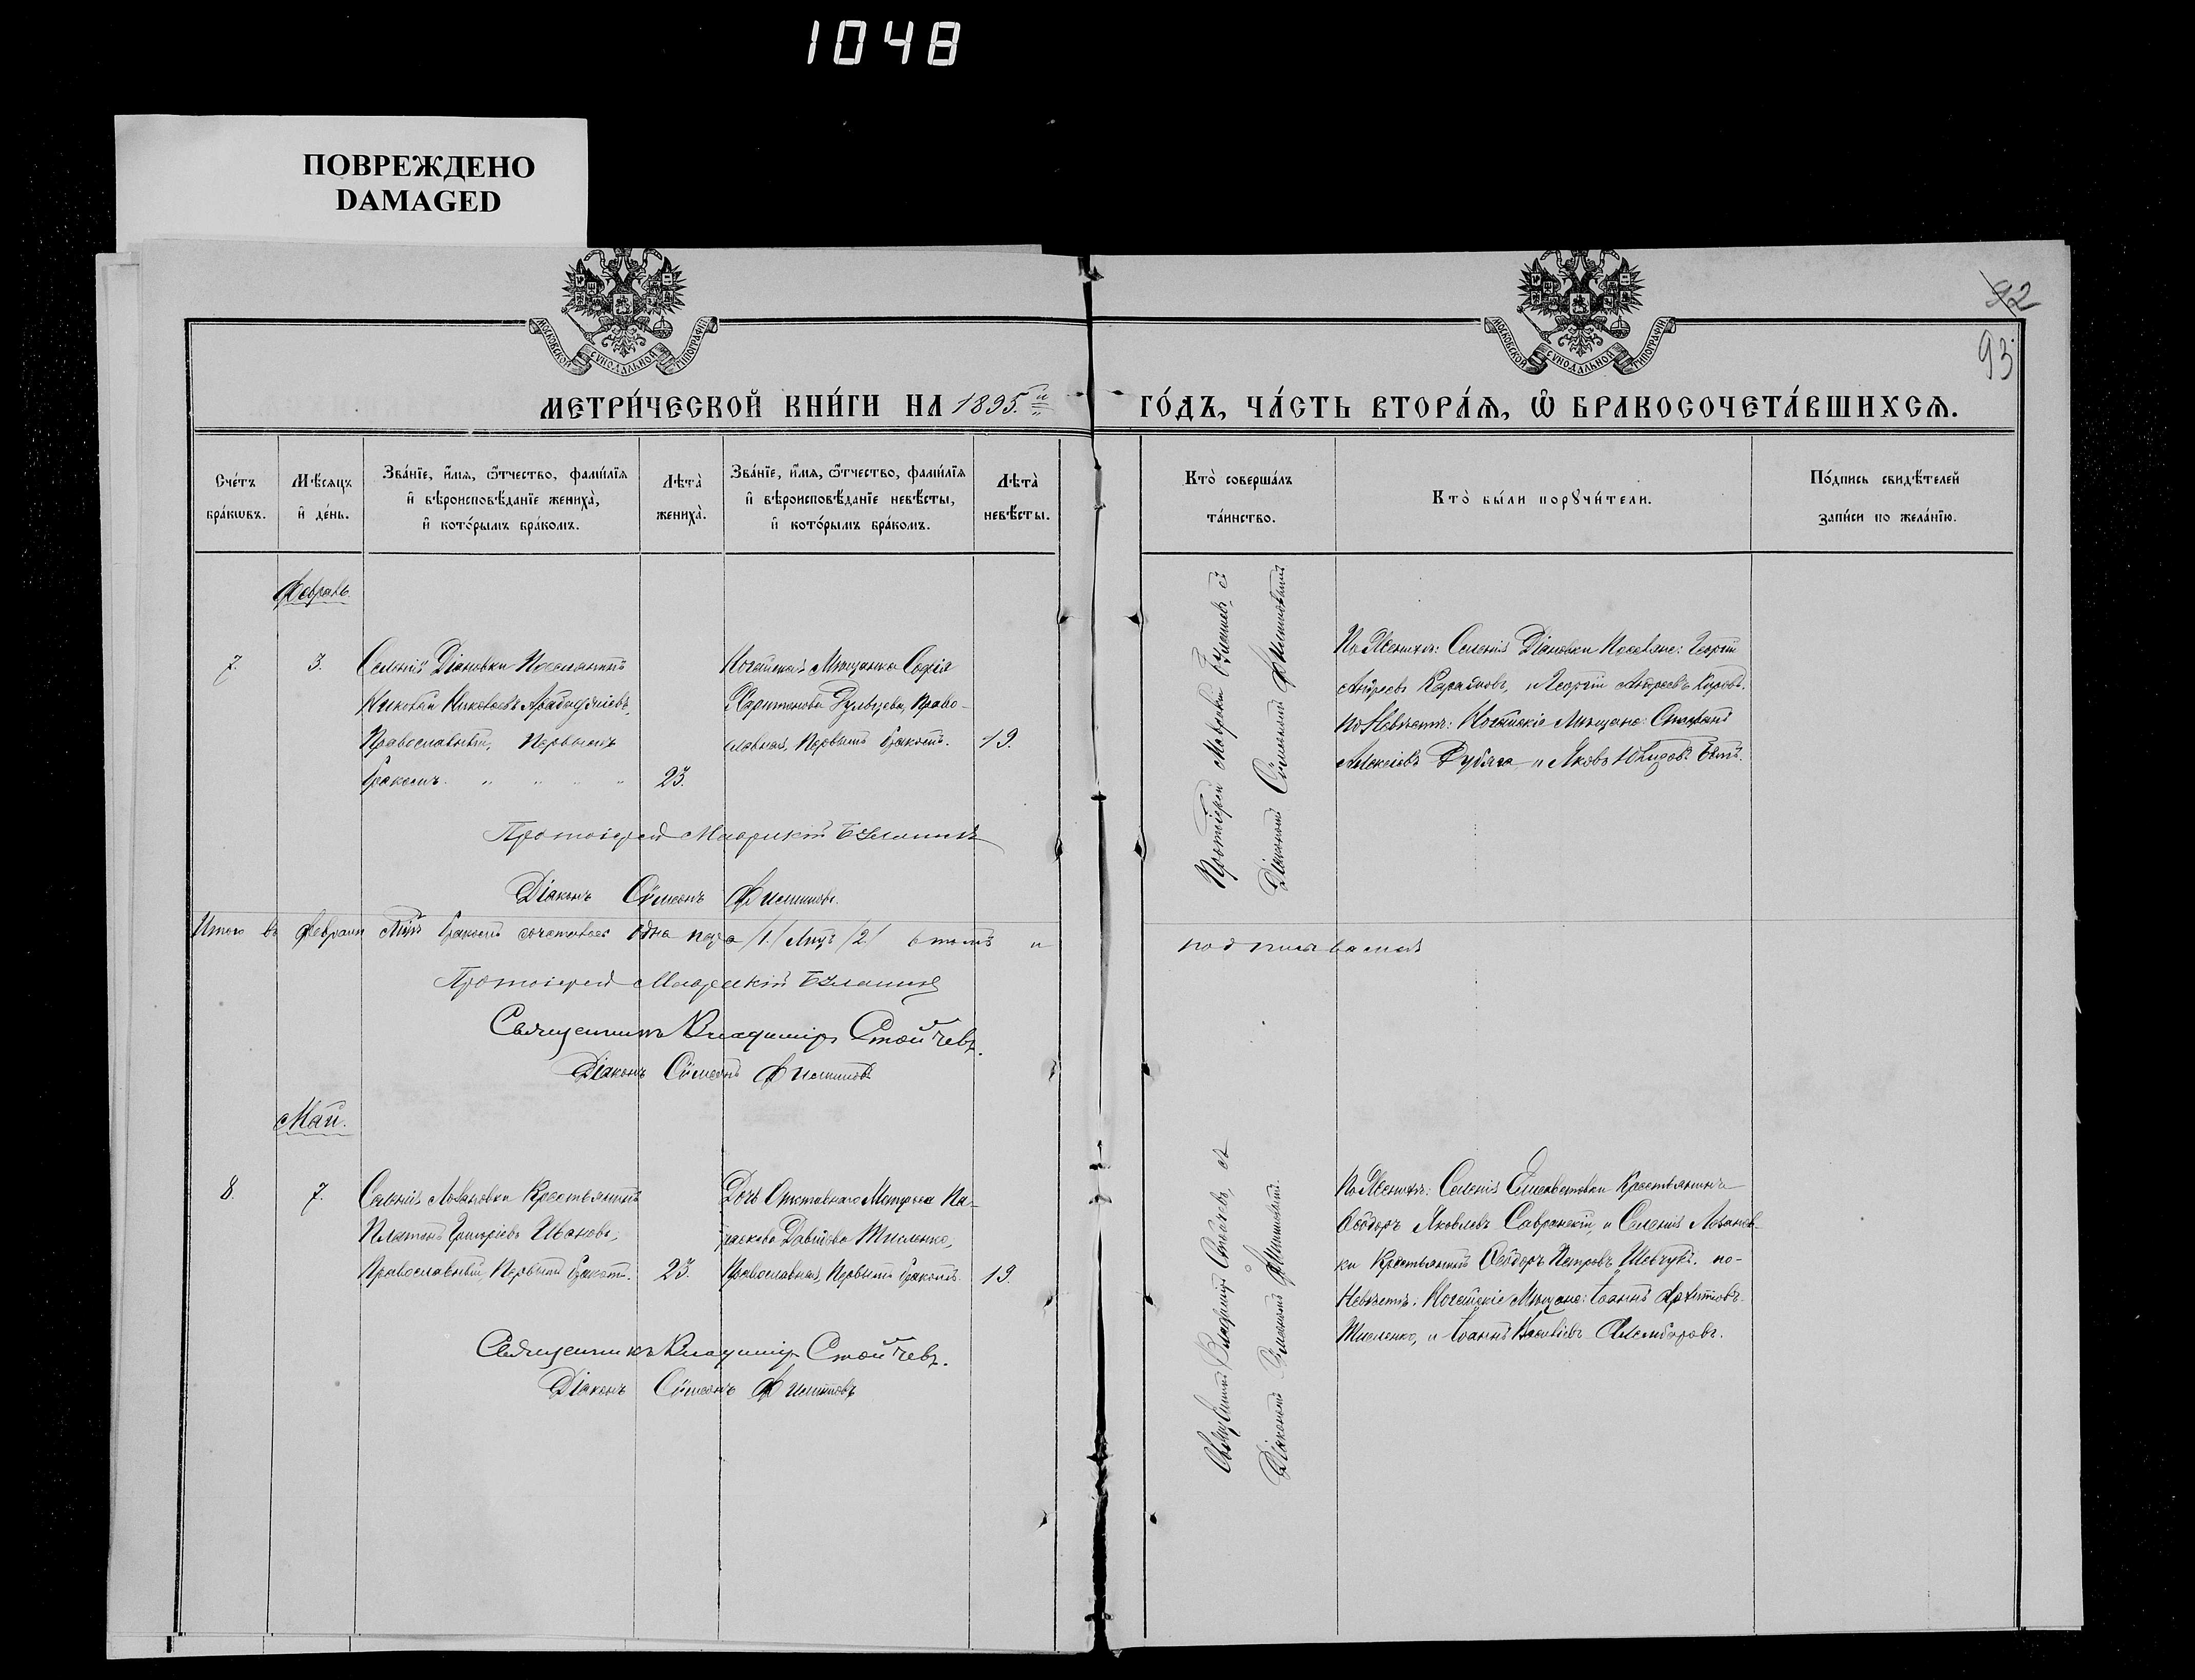 1048
ПОВРЕЖДЕНО
DAMAGED
МОСКОВСКОЙ СУНОДАЛЬНОЙ ТИПОГРАФІИ
МОСКОВСКОЙ СУНОДАЛЬНОЙ ТИПОГРАФІИ
92
93
МЕТРИ́ЧЕСКОЙ КНИ́ГИ НА 1895.й
ГО́ДЪ, ЧА́СТЬ ВТОРА́Ѧ, Ѽ БРАКОСОЧЕТА́ВШИХСѦ.
Сче́тъ бра́кѡвъ.
Мѣ́сяцъ и҆ де́нь.
Зва́нїе, и҆́мя, ѻ҆́тчество, фами́лїя и҆ вѣроисповѣ́данїе жениха̀, и҆ кото́рымъ бра́комъ.
Лѣта̀ жениха̀.
Зва́нїе, и҆́мя, ѻ҆́тчество, фами́лїя и҆ вѣроисповѣ́данїе невѣ́сты, и҆ кото́рымъ бра́комъ.
Лѣта̀ невѣ́сты.
Кто̀ соверша́лъ та́инство.
Кто̀ бы́ли порꙋчи́тели.
По́дпись свидѣ́телей за́писи по жела́нїю.
Февраль.
7.
3.
Селенія Діановки Поселянинъ
Николай Николаевъ
Православный, Первымъ
бракомъ. " " " "
23.
Ногайская Мѣщанка Софія
Харитонова Право-
славная, Первымъ бракомъ.
19.
Протоіерей Маврикій съ
Діакономъ Сѵмеономъ Филипповымъ
По Женихѣ: Селенія Діановки Поселяне: Георгій
Андреевъ и Георгій Андреевъ
по Невѣстѣ: Ногайскіе Мѣщане: Стефанъ
Алексіевъ Дубяга и Яковъ
Протоіерей Маврикій
Діаконъ Сѵмеонъ Филипповъ.
Итого въ Февралѣ М-цѣ бракомъ сочеталась одна пара /1./ Лицъ /2./ въ томъ и
подписываемся
Протоіерей Маврикій
Священникъ Владиміръ Стойчевъ.
Діаконъ Сѵмеонъ Филипповъ
Май.
8.
7.
Селенія Лозановки Крестьянинъ
Платонъ Григоріевъ Ивановъ,
Православный, Первымъ бракомъ.
23.
Дочь Отставнаго Матроса Па-
раскева Давидова
Православная, Первымъ бракомъ.
19.
Священникъ Владиміръ Стойчевъ, съ
Діакономъ Сѵмеономъ Филипповымъ.
По Женихѣ: Селенія Елисаветовки Крестьянинъ
Ѳеодоръ Яковлевъ Савранскій, и Селенія Лозанов-
ки Крестьянинъ Ѳеодоръ Петровъ Шевчукъ. по-
Невѣстѣ: Ногайскіе Мѣщане: Іоаннъ
и Іоаннъ Васильевъ
Священникъ Владиміръ Стойчевъ.
Діаконъ Сѵмеонъ Филипповъ